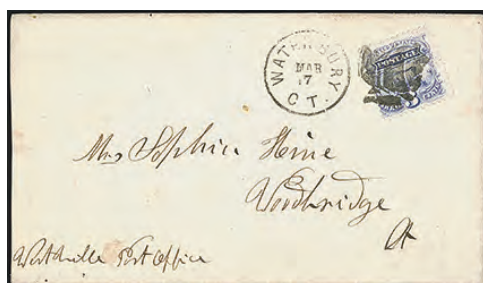 WATERBURY
MAR
17
CT.
POSTAGE
Mrs Sophia Heine
Woodbridge
Ct
Westville Post Office